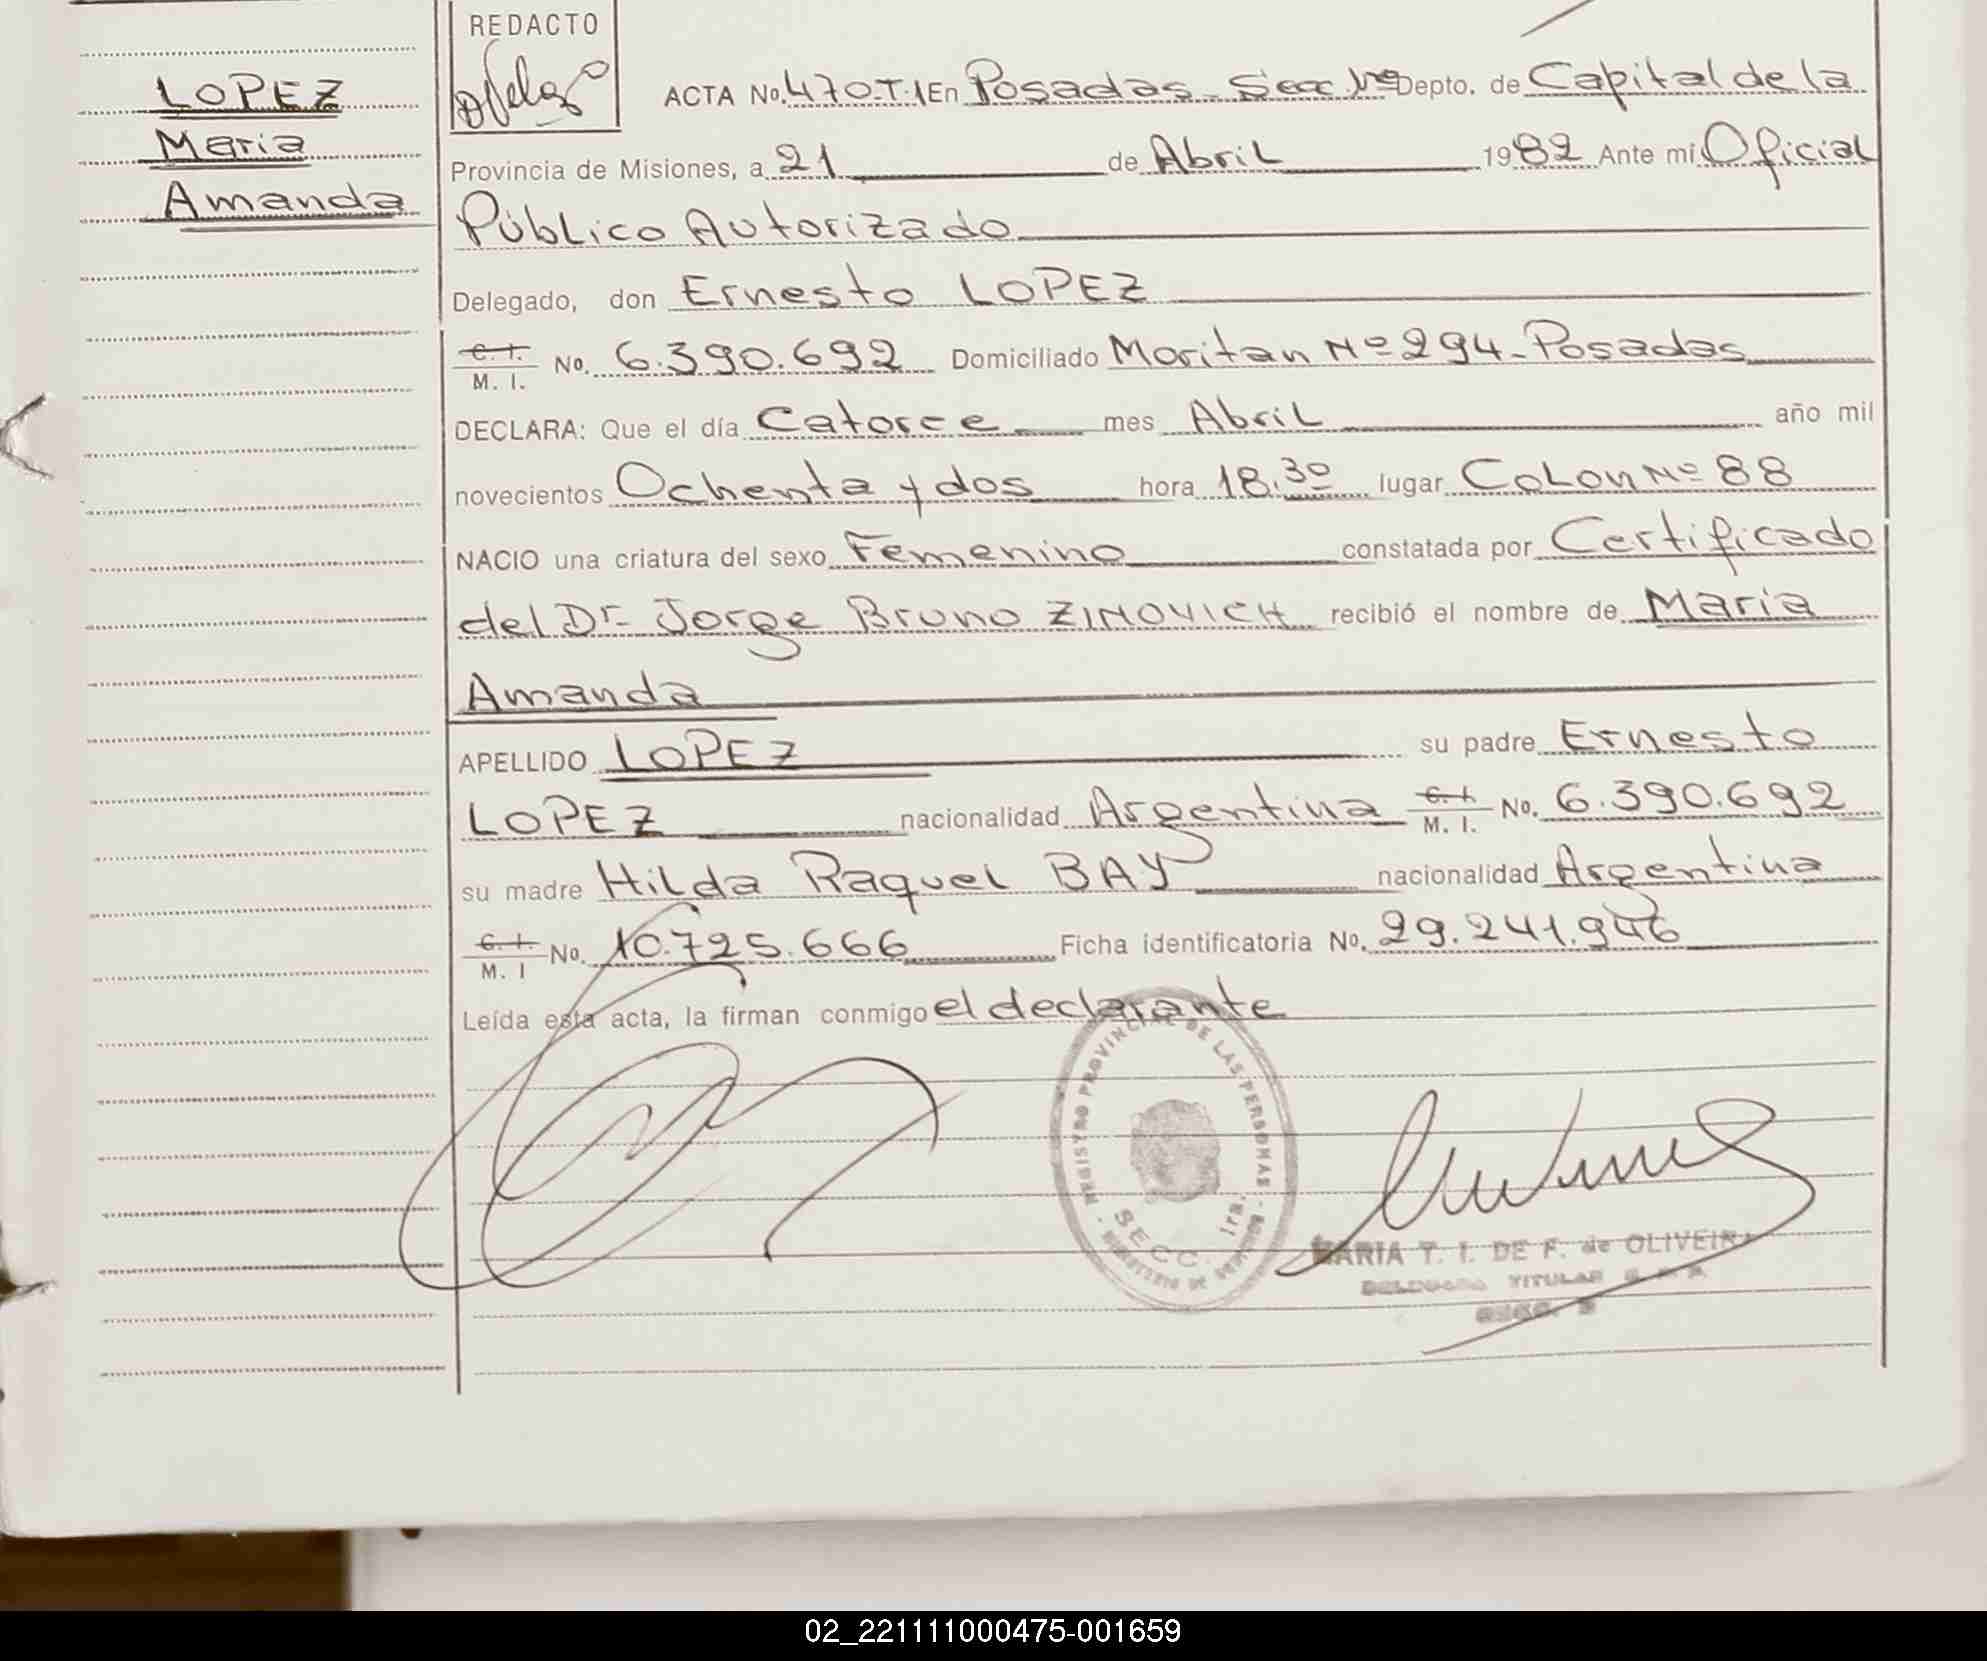 REDACTO
LOPEZ
Maria
Amanda
ACTA No. 470.T.1 En Posadas - Secc. 1ra Depto. de Capital de la
Provincia de Misiones, a 21 de Abril 1982 Ante mi Oficial
Público Autorizado
Delegado, don Ernesto LOPEZ
C. I. M. I. No. 6.390.692 Domiciliado Moritan Nº 294 - Posadas
DECLARA: Que el día Catorce mes Abril año mil
novecientos Ochenta y dos hora 18.30 lugar Colon Nº 88
NACIO una criatura del sexo Femenino constatada por Certificado
del Dr. Jorge Bruno ZINOVICH recibió el nombre de Maria
Amanda
APELLIDO LOPEZ su padre Ernesto
LOPEZ nacionalidad Argentina C. I. M. I. No. 6.390.692
su madre Hilda Raquel BAY nacionalidad Argentina
C. I. M. I No. 10.725.666 Ficha identificatoria No. 29.241.946
Leída esta acta, la firman conmigo el declarante
REGISTRO PROVINCIAL DE LAS PERSONAS
SECC. 1ra.
MARIA T. I. DE F. de OLIVEIRA
TITULAR